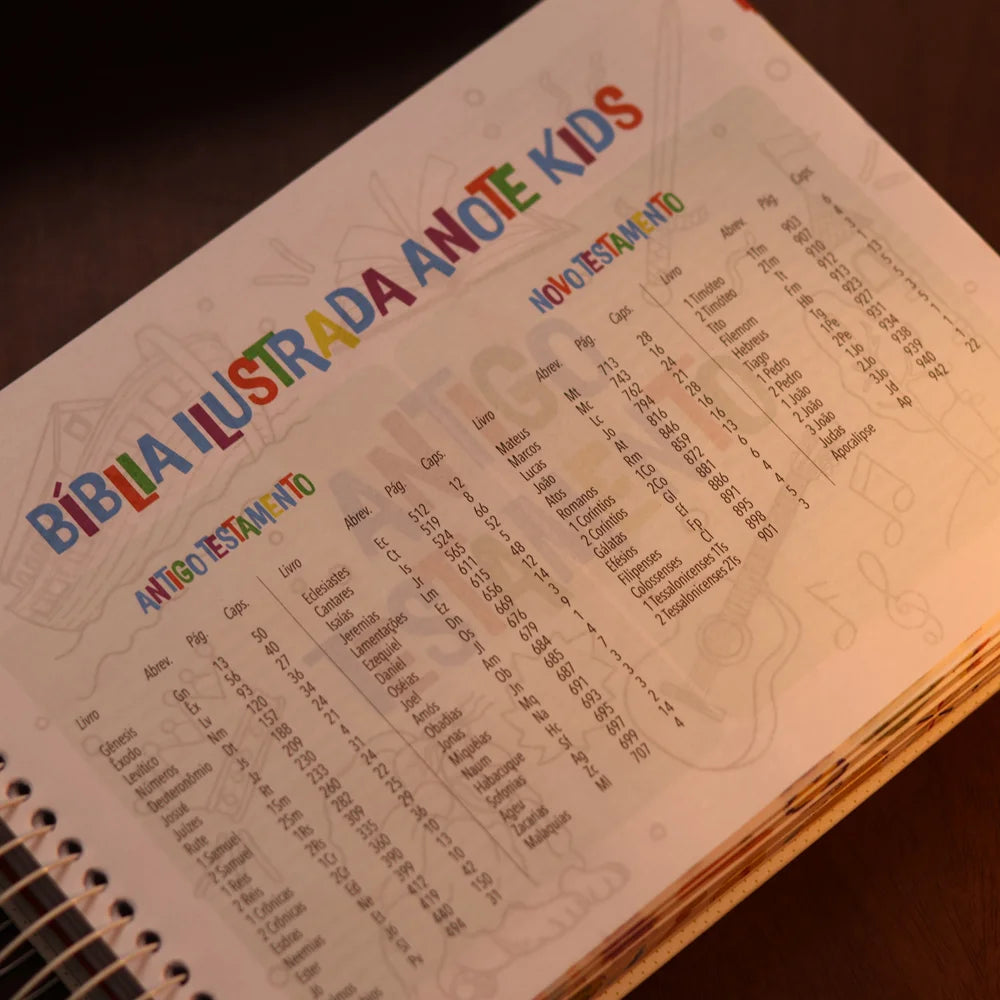 BÍBLIA ILUSTRADA ANOTE KIDS
ANTIGO TESTAMENTO
Livro Abrev. Pág. Caps.
Gênesis Gn 13 50
Êxodo Ex 56 40
Levítico Lv 93 27
Números Nm 120 36
Deuteronômio Dt 157 34
Josué Js 188 24
Juízes Jz 209 21
Rute Rt 230 4
1 Samuel 1Sm 233 31
2 Samuel 2Sm 260 24
1 Reis 1Rs 282 22
2 Reis 2Rs 309 25
1 Crônicas 1Cr 335 29
2 Crônicas 2Cr 360 36
Esdras Ed 390 10
Neemias Ne 399 13
Ester Et 412 10
Jó Jó 419 42
Sl 440 150
Pv 494 31
Livro Abrev. Pág. Caps.
Eclesiastes Ec 512 12
Cantares Ct 519 8
Isaías Is 524 66
Jeremias Jr 565 52
Lamentações Lm 611 5
Ezequiel Ez 615 48
Daniel Dn 656 12
Oséias Os 669 14
Joel Jl 676 3
Amós Am 679 9
Obadias Ob 684 1
Jonas Jn 685 4
Miquéias Mq 687 7
Naum Na 691 3
Habacuque Hc 693 3
Sofonias Sf 695 3
Ageu Ag 697 2
Zacarias Zc 699 14
Malaquias Ml 707 4
NOVO TESTAMENTO
Livro Abrev. Pág. Caps.
Mateus Mt 713 28
Marcos Mc 743 16
Lucas Lc 762 24
João Jo 794 21
Atos At 816 28
Romanos Rm 846 16
1 Coríntios 1Co 859 16
2 Coríntios 2Co 872 13
Gálatas Gl 881 6
Efésios Ef 886 6
Filipenses Fp 891 4
Colossenses Cl 895 4
1 Tessalonicenses 1Ts 898 5
2 Tessalonicenses 2Ts 901 3
Livro Abrev. Pág. Caps.
1 Timóteo 1Tm 903 6
2 Timóteo 2Tm 907 4
Tito Tt 910 3
Filemom Fm 912 1
Hebreus Hb 913 13
Tiago Tg 923 5
1 Pedro 1Pe 927 5
2 Pedro 2Pe 931 3
1 João 1Jo 934 5
2 João 2Jo 938 1
3 João 3Jo 939 1
Judas Jd 940 1
Apocalipse Ap 942 22
ANTIGO
TESTAMENTO